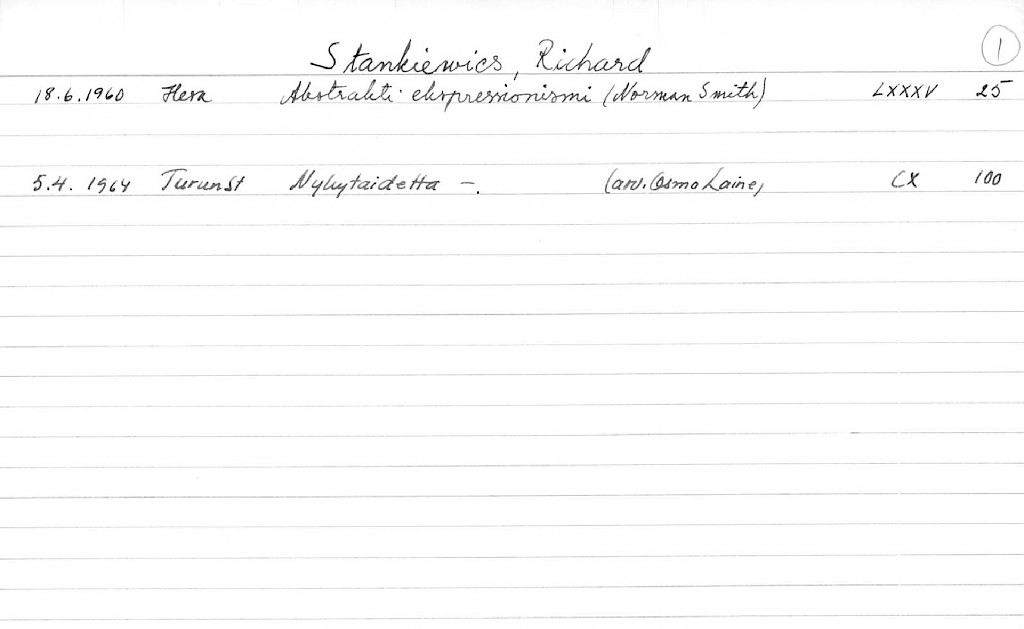 1
Stankiewics, Richard
18.6.1960 Hesa Abstrakti ekspressionismi (Norman Smith) LXXXV 25
5.4. 1964 TurunSt Nykytaidetta -. (arv. Osmo Laine) CX 100